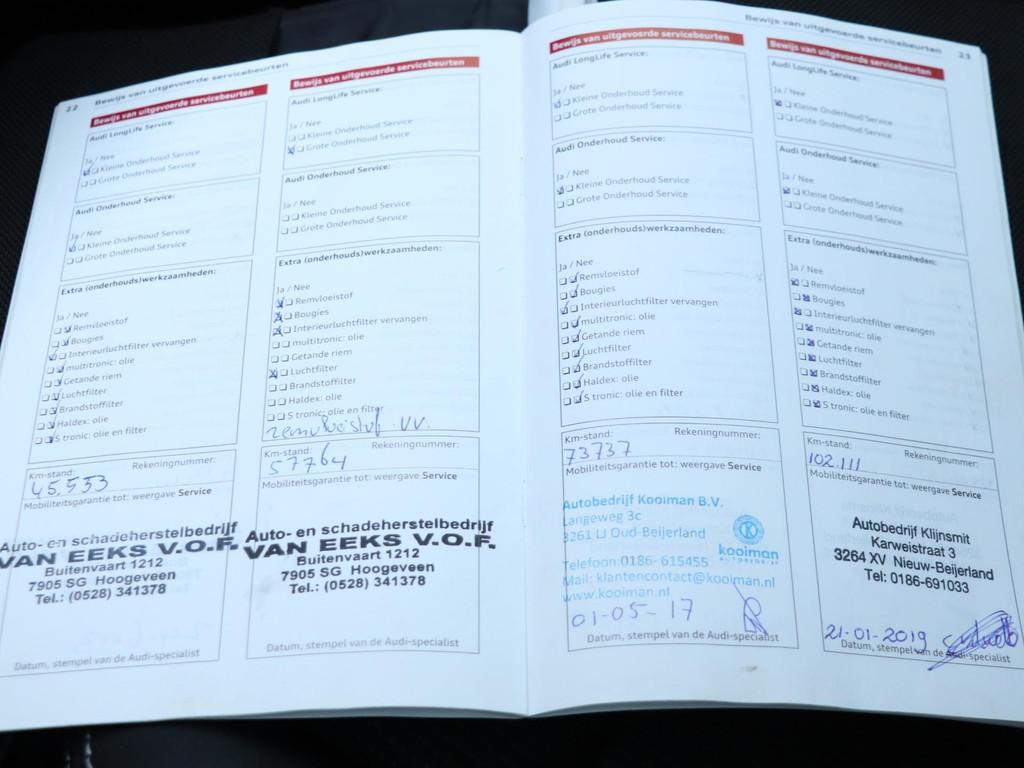 22 Bewijs van uitgevoerde servicebeurten
Bewijs van uitgevoerde servicebeurten
Audi LongLife Service:
Ja / Nee
Kleine Onderhoud Service
Grote Onderhoud Service
Audi Onderhoud Service:
Ja / Nee
Kleine Onderhoud Service
Grote Onderhoud Service
Extra (onderhouds)werkzaamheden:
Ja / Nee
Remvloeistof
Bougies
Interieurluchtfilter vervangen
multitronic: olie
Getande riem
Luchtfilter
Brandstoffilter
Haldex: olie
S tronic: olie en filter
Km-stand: Rekeningnummer:
45.553
Mobiliteitsgarantie tot: weergave Service
Auto- en schadeherstelbedrijf
VAN EEKS V.O.F.
Buitenvaart 1212
7905 SG Hoogeveen
Tel.: (0528) 341378
Datum, stempel van de Audi-specialist
Bewijs van uitgevoerde servicebeurten
Audi LongLife Service:
Ja / Nee
Kleine Onderhoud Service
Grote Onderhoud Service
Audi Onderhoud Service:
Ja / Nee
Kleine Onderhoud Service
Grote Onderhoud Service
Extra (onderhouds)werkzaamheden:
Ja / Nee
Remvloeistof
Bougies
Interieurluchtfilter vervangen
multitronic: olie
Getande riem
Luchtfilter
Brandstoffilter
Haldex: olie
S tronic: olie en filter
remvloeistof VV.
Km-stand: Rekeningnummer:
57764
Mobiliteitsgarantie tot: weergave Service
Auto- en schadeherstelbedrijf
VAN EEKS V.O.F.
Buitenvaart 1212
7905 SG Hoogeveen
Tel.: (0528) 341378
Datum, stempel van de Audi-specialist
Bewijs van uitgevoerde servicebeurten 23
Bewijs van uitgevoerde servicebeurten
Audi LongLife Service:
Ja / Nee
Kleine Onderhoud Service
Grote Onderhoud Service
Audi Onderhoud Service:
Ja / Nee
Kleine Onderhoud Service
Grote Onderhoud Service
Extra (onderhouds)werkzaamheden:
Ja / Nee
Remvloeistof
Bougies
Interieurluchtfilter vervangen
multitronic: olie
Getande riem
Luchtfilter
Brandstoffilter
Haldex: olie
S tronic: olie en filter
Km-stand: Rekeningnummer:
73737
Mobiliteitsgarantie tot: weergave Service
Autobedrijf Kooiman B.V.
Langeweg 3c
3261 LJ Oud-Beijerland
Telefoon:0186- 615455
Mail: klantencontact@kooiman.nl
www.kooiman.nl
kooiman
AUTOBEDRIJF
01-05-17
Datum, stempel van de Audi-specialist
Bewijs van uitgevoerde servicebeurten
Audi LongLife Service:
Ja / Nee
Kleine Onderhoud Service
Grote Onderhoud Service
Audi Onderhoud Service:
Ja / Nee
Kleine Onderhoud Service
Grote Onderhoud Service
Extra (onderhouds)werkzaamheden:
Ja / Nee
Remvloeistof
Bougies
Interieurluchtfilter vervangen
multitronic: olie
Getande riem
Luchtfilter
Brandstoffilter
Haldex: olie
S tronic: olie en filter
Km-stand: Rekeningnummer:
102.111
Mobiliteitsgarantie tot: weergave Service
Autobedrijf Klijnsmit
Karweistraat 3
3264 XV Nieuw-Beijerland
Tel: 0186-691033
21-01-2019
Datum, stempel van de Audi-specialist